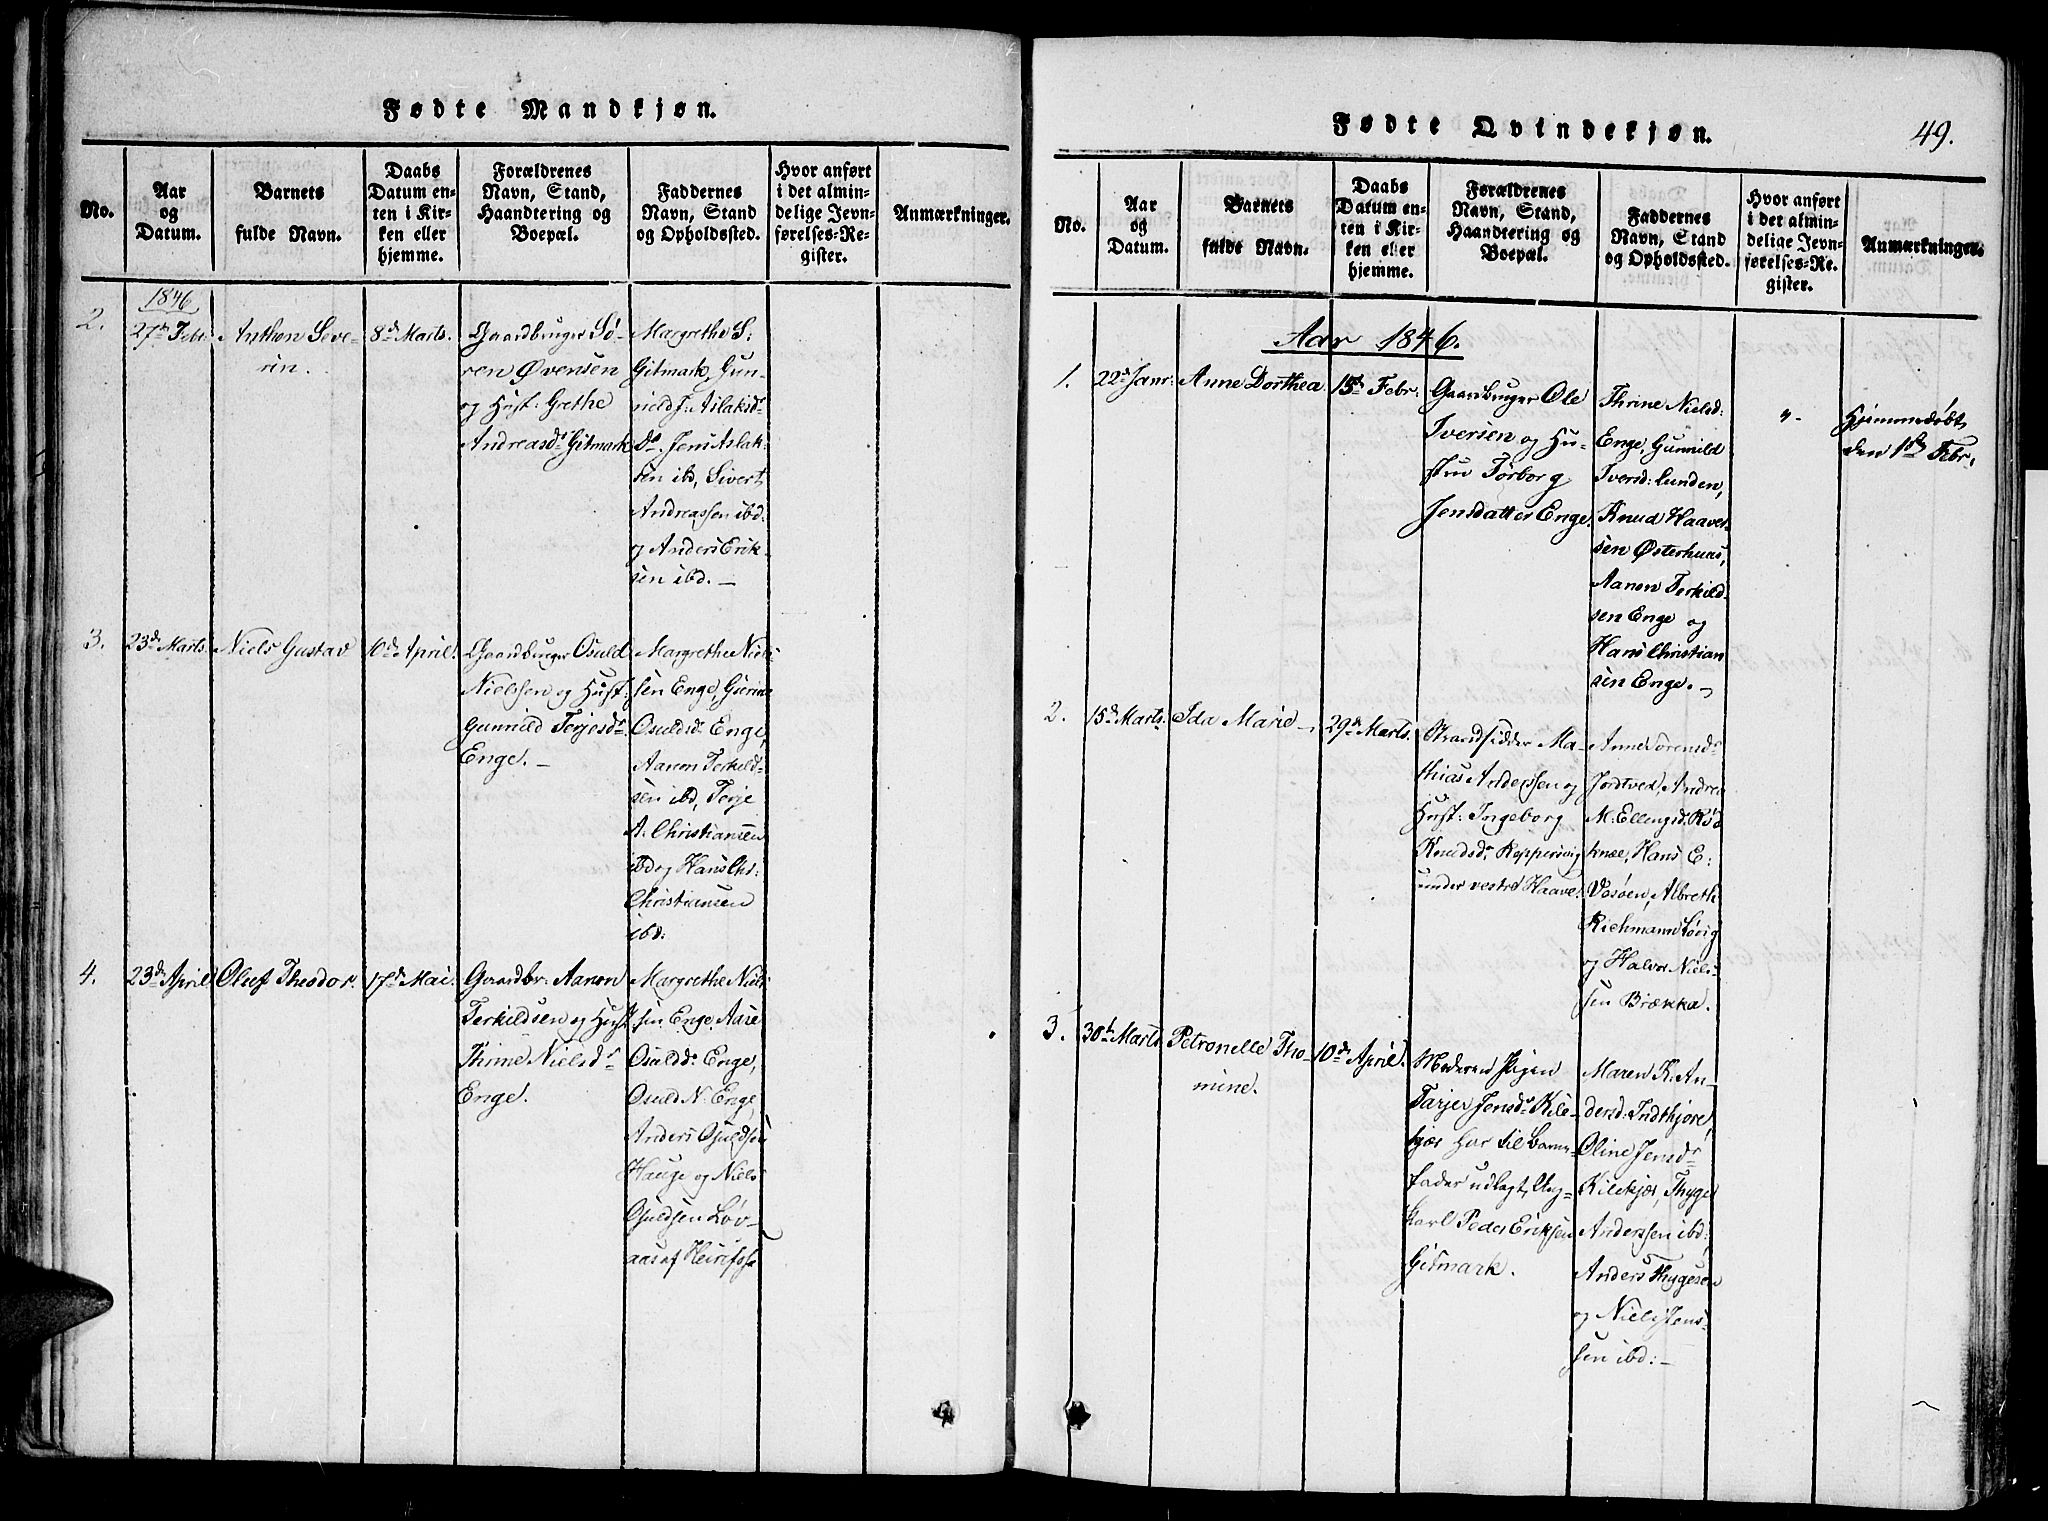 Fødte Mandkjøn.
No.
Aar
og
Datum.
Barnets
fulde Navn.
Daabs
Datum en-
ten i Kir-
ken eller
hjemme.
Forældrenes
Navn, Stand,
Haandtering og
Boepæl.
Faddernes
Navn, Stand
og Opholdssted.
Hvor anført
i det almin-
delige Jevn-
førelses-Re-
gister.
Anmærkninger.
1846
2.
27de Febr
Anthon Seve-
rin.
8de Marts.
Gaardbruger Sø-
ren Øvensen
og Hust: Grethe
Andreasdr Gitmark
Margrethe S.
Gitmark, Gun-
nild J: Aslaksdr
Do. Jens Aslak-
sen ibd, Sivert
Andreassen ibd.
og Anders Erik-
sen ibd. –
3.
23de Marts.
Niels Gustav
10de April.
Gaardbruger Osuld
Nielssen og Hust:
Gunnild Terjesdr
Enge. –
Margrethe Niels-
sen Enge,
Osuldsdr Enge,
Aanon Terkild-
sen ibd, Terje
A. Christiansen
ibd og Hans Chr:
Christiansen
ibd.
4.
23de April
Oluf Theodor.
17de Mai.
Gaardbr: Aanon
Terkildsen og Hust
Thrine Nielsdr
Enge.
Margrethe Niels-
sen Enge, Aase
Osuldsdr Enge,
Osuld N: Enge,
Anders Osuldsen
Hauge og Niels
Osuldsen Løv-
aas af
Fødte Qvindekjøn.
49.
No.
Aar
og
Datum.
Barnets
fulde Navn.
Daabs
Datum en-
ten i Kir-
ken eller
hjemme.
Forældrenes
Navn, Stand,
Haandtering og
Boepæl.
Faddernes
Navn, Stand
og Opholdssted.
Hvor anført
i det almin-
delige Jevn-
førelses-Re-
gister.
Anmærkninger.
Aar 1846.
1.
22de Janr:
Anne Dorthea
15de Febr:
Gaardbruger Ole
Iversen og Hu-
stru Torborg
Jensdatter Enge.
Thrine Nielsd:
Enge, Gunnild
Iversd: Lunden,
Knud Haaver-
sen Østerhuus,
Aanon Terkild-
sen Enge og
Hans Christian
sen Enge. –
"-
Hjemmedøbt
den 1ste Febr.
2.
15de Marts.
Ida Marie –
29de Marts.
Strandsidder Ma-
thias Anderssen og
Hust: Ingeborg
Knudsdr Reppersvig
under vestre Haave.
Anne Sørensdr
Jortved, Andrea
M: Ellingsd: Rød
knæl, Hans E:
Vosøen, Albreth
Richmann Løvig
og Halvor Niels-
sen Brække.
3.
30te Marts
Petronelle Tho-
mine.
10de April.
Moderen Pigen
Tarjer Jensdr Kile-
kjær har til Barne-
fader udlagt Ung-
karl Peder Eriksen
Gitmark.
Maren K: An-
dersd: Indthjore,
Oline Jensdr
Kilekjær, Thyge
Anderssen ibd:,
Anders Thygesen
og Niels Jens-
sen ibd: –